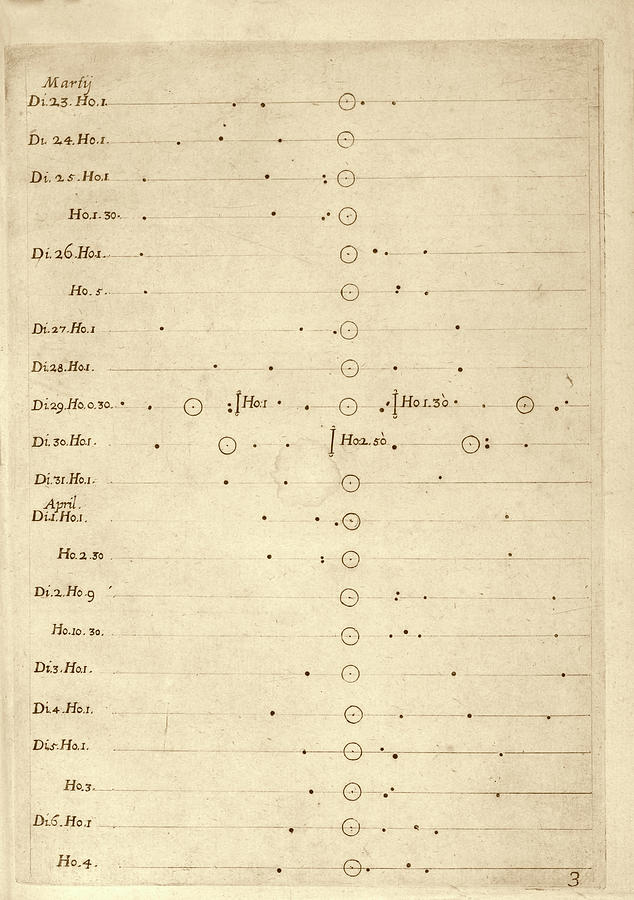 Martij
Di.23. Ho.1.
Di. 24. Ho.1.
Di. 25. Ho.1
Ho.1.30.
Di. 26. Ho.1.
Ho. 5.
Di. 27. Ho.1
Di.28. Ho.1.
Di.29. Ho. 0.30. Ho.1 Ho 1.30
Di. 30. Ho.1. Ho2. 50
Di. 31. Ho.1.
April.
Di.1. Ho.1.
Ho. 2.30
Di. 2. Ho 9
Ho. 10. 30.
Di.3. Ho.1.
Di.4. Ho.1.
Di.5. Ho.1.
Ho.3.
Di.6. Ho.1
Ho. 4.
3